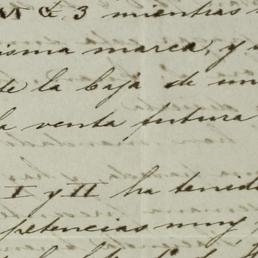 & 3 mientras
misma marca, y
de la baja de un
la venta futura
I y II ha tenido
petencias muy